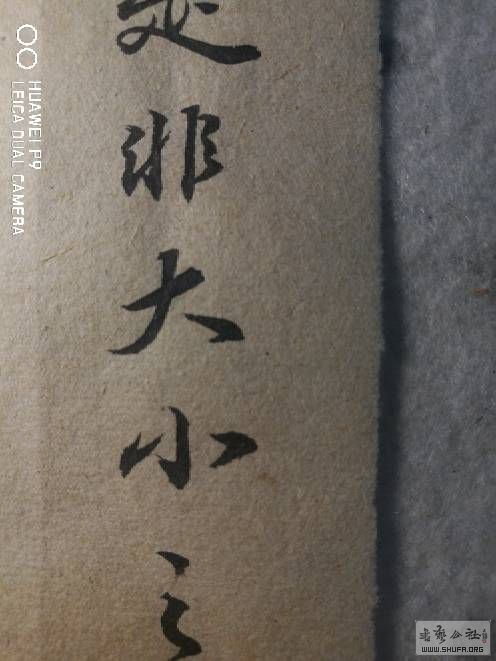 是非大小之
HUAWEI P9
LEICA DUAL CAMERA
书艺公社
WWW.SHUFA.ORG